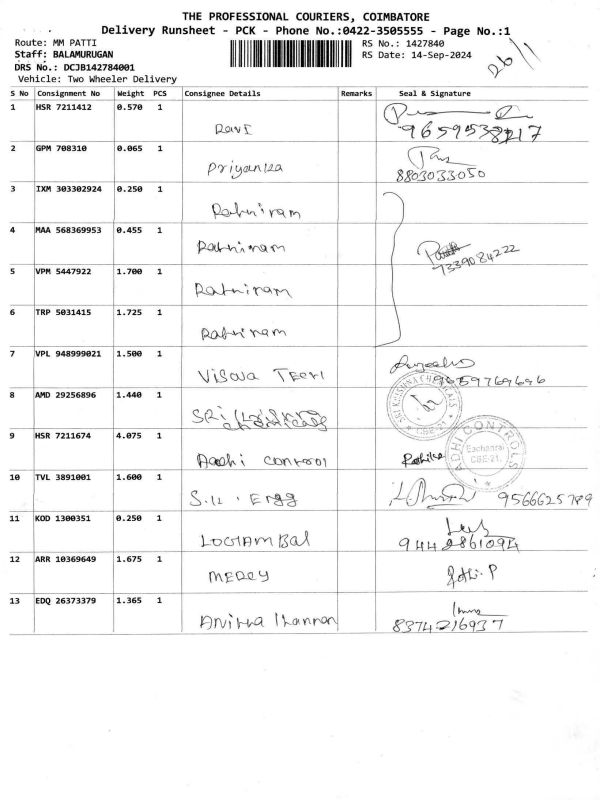 THE PROFESSIONAL COURIERS, COIMBATORE
Delivery Runsheet - PCK - Phone No.:0422-3505555 - Page No.:1
Route: MM PATTI RS No.: 1427840
Staff: BALAMURUGAN RS Date: 14-Sep-2024
DRS No.: DCJB142784001
Vehicle: Two Wheeler Delivery
26/1
S No Consignment No Weight PCS Consignee Details Remarks Seal & Signature
1 HSR 7211412 0.570 1
Ravi
2 GPM 708310 0.065 1
Priyanka 8803033050
3 IXM 303302924 0.250 1
Ratniram
4 MAA 568369953 0.455 1
Ratniram 7339084222
5 VPM 5447922 1.700 1
Ratniram
6 TRP 5031415 1.725 1
Ratniram
7 VPL 948999021 1.500 1
Visova Teeri 9659769696
8 AMD 29256896 1.440 1
SRi Krishna
chemicals
SRI KRISHNA CHEMICALS
CBE-21
9 HSR 7211674 4.075 1
Aadhi control Radhika
ADHI CONTROLS
Eachanari
CBE-21.
10 TVL 3891001 1.600 1
S.K. Engg 9566625789
11 KOD 1300351 0.250 1
LOGIAMBal 9442861094
12 ARR 10369649 1.675 1
MERCY Jothi.P
13 EDQ 26373379 1.365 1
Anitha Kannan 8374216937